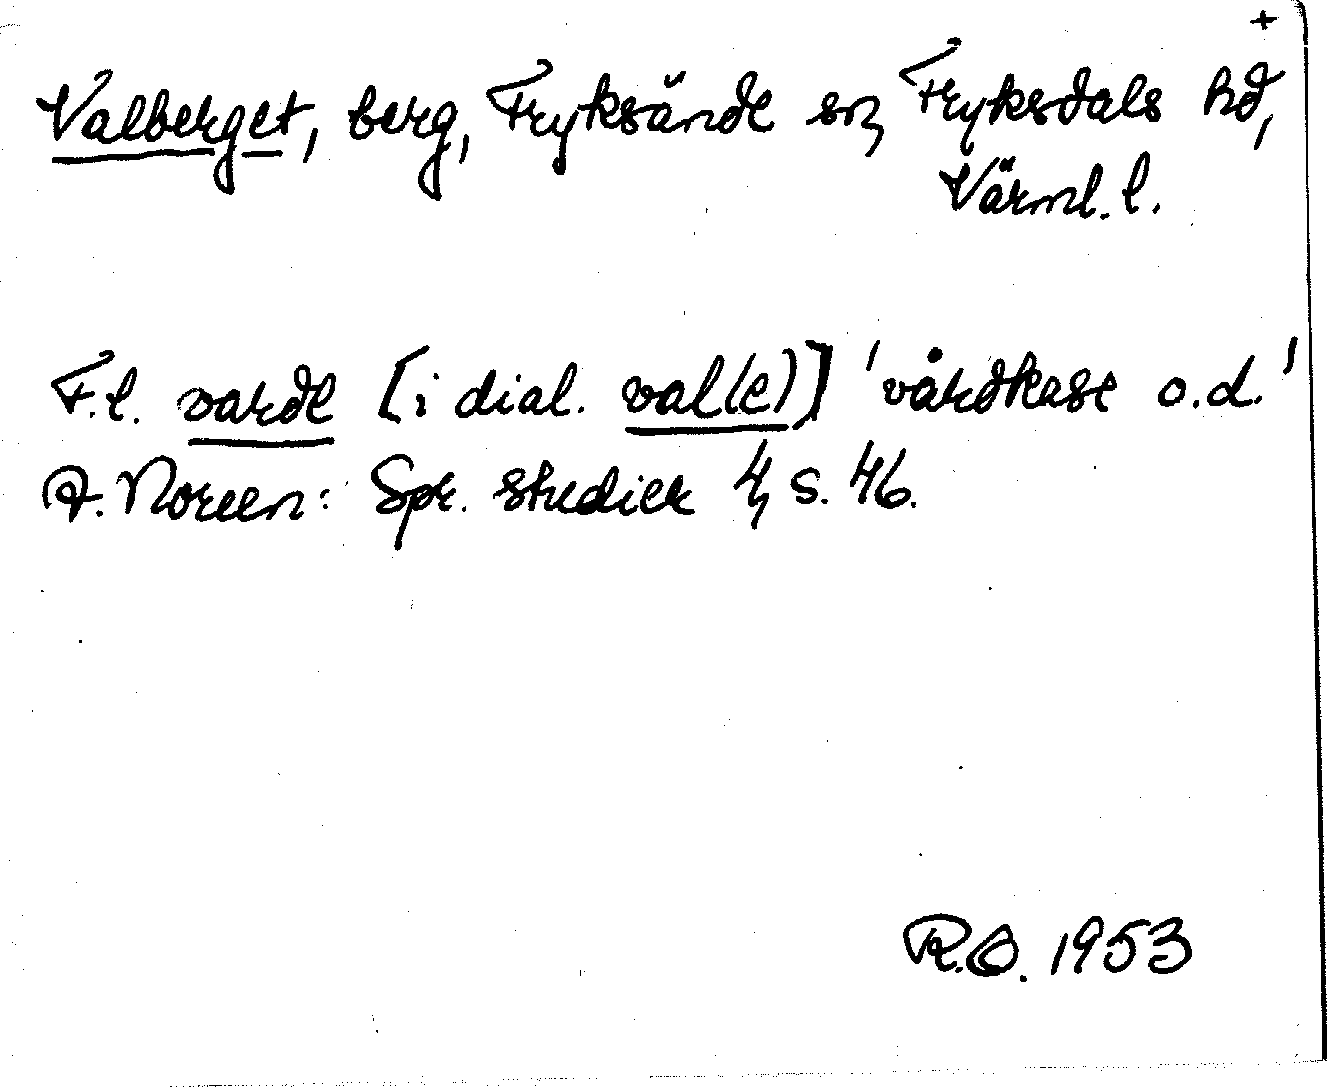 +
Valberget, berg, Fryksände sn, Fryksdals hd,
Värml. l.
F.l. varde [i dial. val(e)] 'vårdkase o.d.'
A. Noreen: Spr. studier 4, s. 46.
R.O. 1953